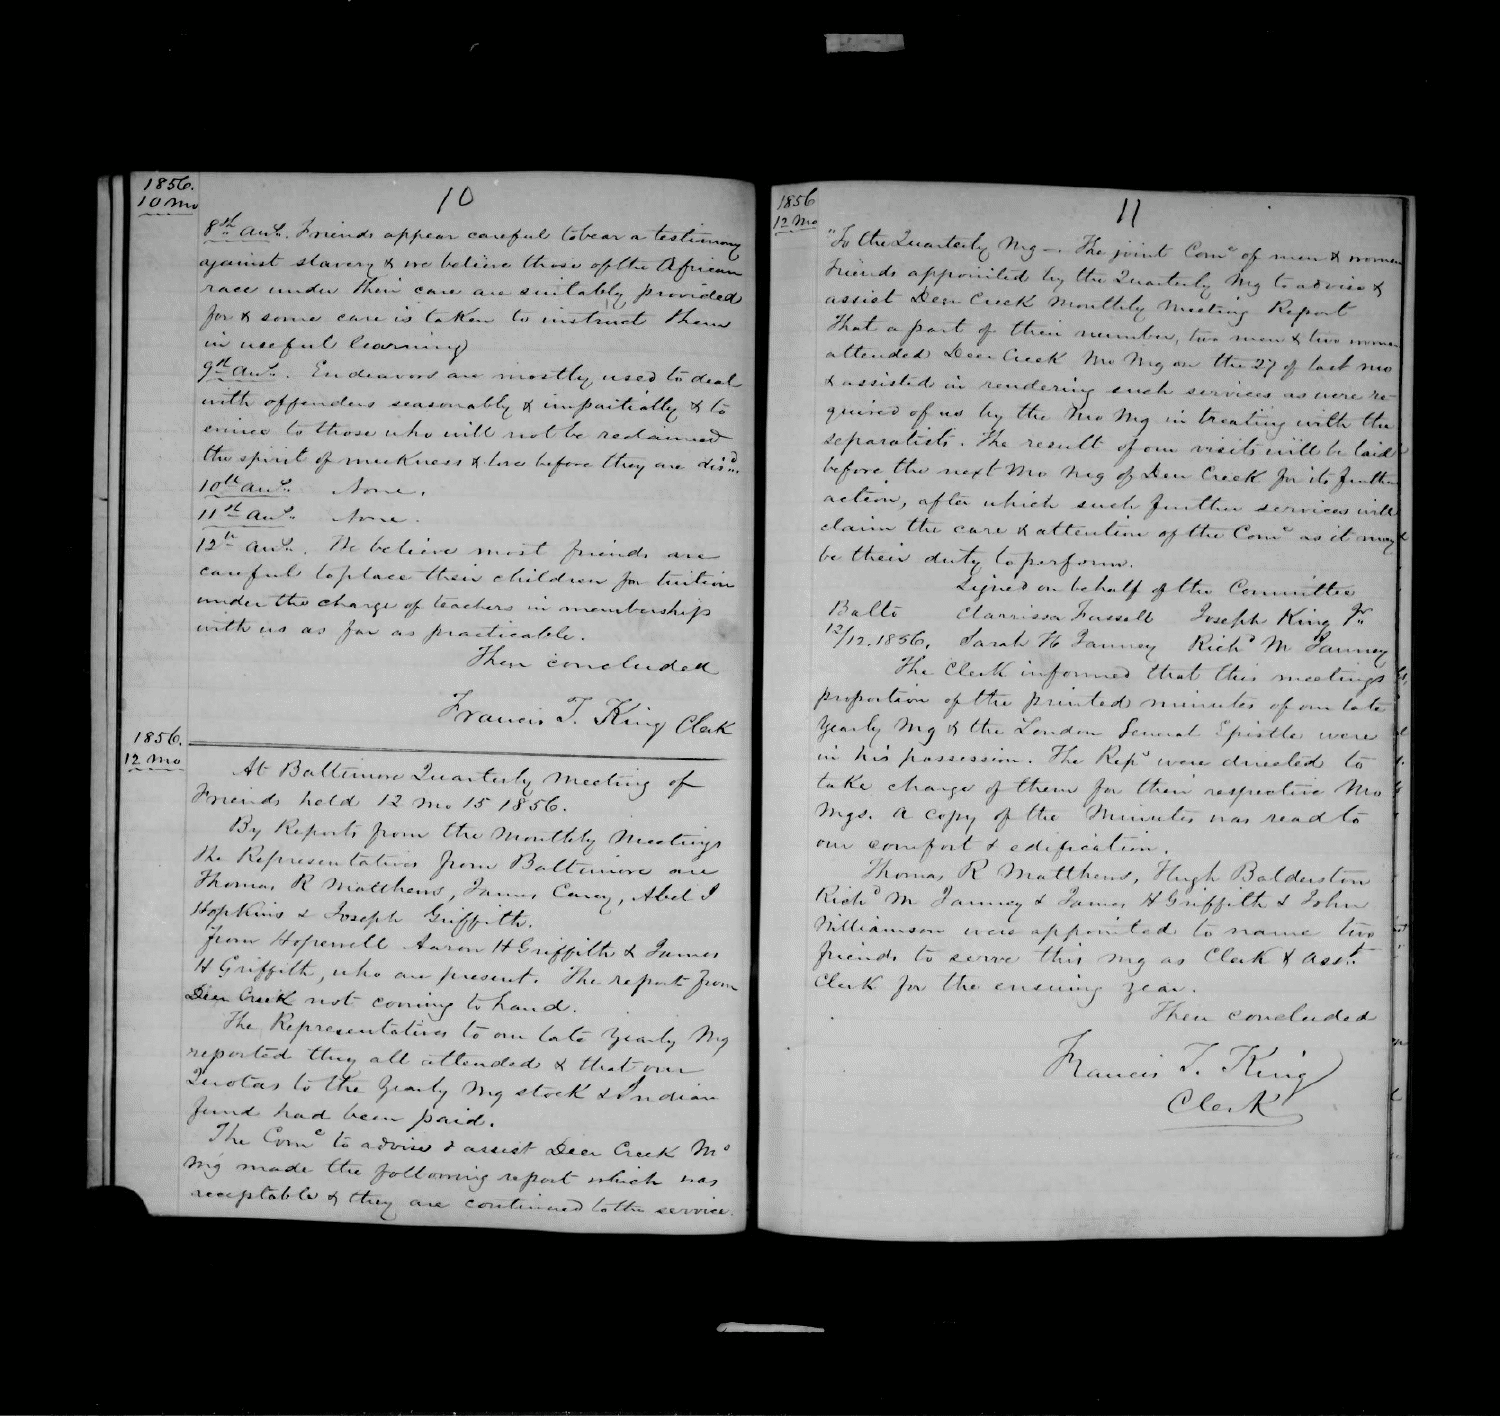 1856.
10 mo
10
8th Ansr. Friends appear careful to bear a testimony
against slavery & we believe those of the African
race under their care are suitably provided
for & some care is taken to instruct them
in useful learning
9th Ansr. Endeavors are mostly used to deal
with offenders seasonably & impartially & to
evince to those who will not be reclaimed
the spirit of meekness & love before they are disd.
10th Ansr. None.
11th Ansr. None.
12th Ansr. We believe most friends are
careful to place their children for tuition
under the charge of teachers in membership
with us as far as practicable.
Then concluded
Francis T. King Clerk
1856.
12 mo
At Baltimore Quarterly Meeting of
Friends held 12 mo 15 1856.
By Reports from the Monthly Meetings
the Representatives from Baltimore are
Thomas R Matthews, James Carey, Abel J
Hopkins & Joseph Griffith.
From Hopewell Aaron H Griffith & James
H Griffith, who are present. The report from
Deer Creek not coming to hand.
The Representatives to our late Yearly Mg
reported they all attended & that our
Quotas to the Yearly Mg stock & Indian
fund had been paid.
The Come to advise & assist Deer Creek Mo
Mg made the following report which was
acceptable & they are continued to the service.
1856
12 mo
11
"To the Quarterly Mg —. The joint Come of men & women
Friends appointed by the Quarterly Mg to advise &
assist Deer Creek Monthly Meeting Report
That a part of their number, two men & two women
attended Deer Creek Mo Mg on the 27 of last mo
& assisted in rendering such services as were re-
quired of us by the Mo Mg in treating with the
separatists. The result of our visits will be laid
before the next Mo Mg of Deer Creek for its further
action, after which such further services will
claim the care & attention of the Come as it may
be their duty to perform.
Signed on behalf of the Committee
Balto Clarrissa Fussell Joseph King Jr.
12/12.1856. Sarah H Janney Richd M Janney
The Clerk informed that this meetings
proportion of the printed minutes of our late
Yearly Mg & the London General Epistle were
in his possession. The Reps were directed to
take charge of them for their respective Mo
Mgs. A copy of the Minutes was read to
our comfort & edification.
Thomas R Matthews, Hugh Balderston
Richd M Janney & James H Griffith & John
Williamson were appointed to name two
friends to serve this Mg as Clerk & Asst.
Clerk for the ensuing year.
Then concluded
Francis T. King
Clerk